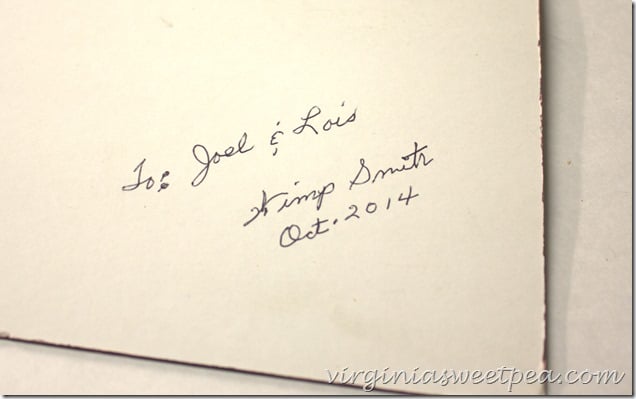 To: Joel & Lois
Wimp Smith
Oct. 2014
virginiasweetpea.com